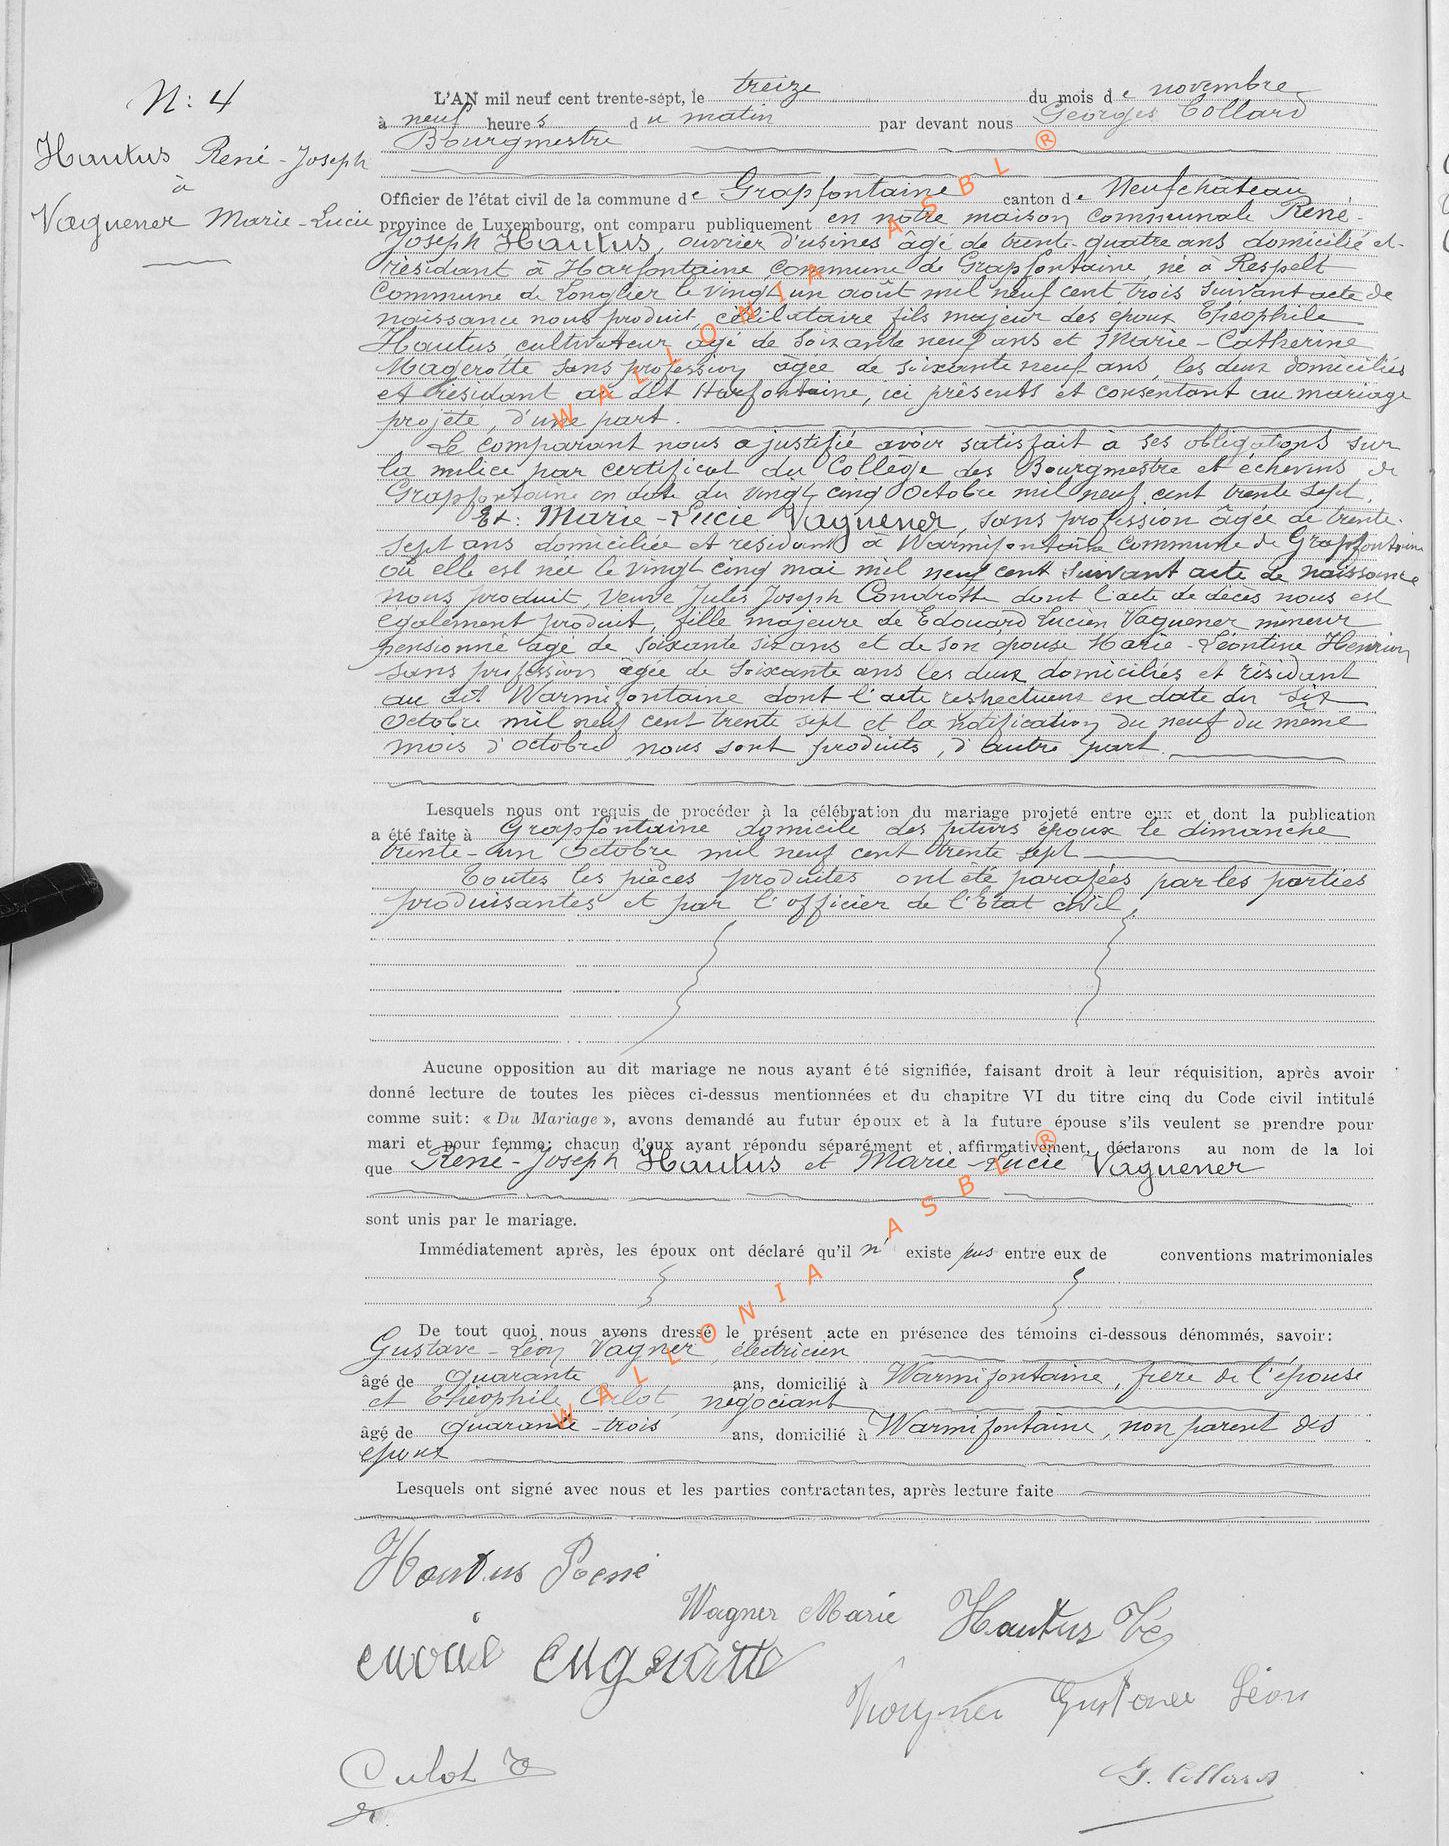 N: 4
Hautus René-Joseph
à
Vaguener Marie-Lucie
L'AN mil neuf cent trente-sept, le treize du mois de novembre
à neuf heures du matin par devant nous Georges Collard
Bourgmestre
Officier de l'état civil de la commune de Grapfontaine canton de Neufchâteau
province de Luxembourg, ont comparu publiquement en notre maison communale René-
Joseph Hautus, ouvrier d'usines âgé de trente-quatre ans domicilié et
résidant à Harfontaine commune de Grapfontaine, né à Respelt
Commune de Longlier le vingt un août mil neuf cent trois suivant acte de
naissance nous produit, célibataire fils majeur des époux Théophile
Hautus cultivateur âgé de soixante neuf ans et Marie-Catherine
Magerotte sans profession âgée de soixante neuf ans, les deux domiciliés
et résidant au dit Harfontaine, ici présents et consentant au mariage
projeté, d'une part.
Le comparant nous a justifié avoir satisfait à ses obligations sur
la milice par certificat du Collège des Bourgmestre et échevins de
Grapfontaine en date du vingt cinq Octobre mil neuf cent trente sept.
Et: Marie-Lucie Vaguener, sans profession âgée de trente-
sept ans domiciliée et résidant à Warmifontaine commune de Grapfontaine
où elle est née le vingt cinq mai mil neuf cent suivant acte de naissance
nous produit, veuve Jules Joseph Condrotte dont l'acte de décès nous est
également produit, fille majeure de Edouard Lucien Vaguener mineur
pensionné âgé de soixante six ans et de son épouse Marie-Léontine Henrion
sans profession âgée de soixante ans les deux domiciliés et résidant
au dit Warmifontaine dont l'acte respectueux en date du six
Octobre mil neuf cent trente sept et la notification du neuf du même
mois d'octobre nous sont produits, d'autre part.
Lesquels nous ont requis de procéder à la célébration du mariage projeté entre eux et dont la publication
a été faite à Grapfontaine domicile des futurs époux le dimanche
trente-un Octobre mil neuf cent trente sept
Toutes les pièces produites ont été parafées par les parties
produisantes et par l'officier de l'Etat civil.
Aucune opposition au dit mariage ne nous ayant été signifiée, faisant droit à leur réquisition, après avoir
donné lecture de toutes les pièces ci-dessus mentionnées et du chapitre VI du titre cinq du Code civil intitulé
comme suit: « Du Mariage », avons demandé au futur époux et à la future épouse s'ils veulent se prendre pour
mari et pour femme; chacun d'eux ayant répondu séparément et affirmativement, déclarons au nom de la loi
que René-Joseph Hautus et Marie-Lucie Vaguener
sont unis par le mariage.
Immédiatement après, les époux ont déclaré qu'il n' existe pas entre eux de conventions matrimoniales
De tout quoi nous avons dressé le présent acte en présence des témoins ci-dessous dénommés, savoir:
Gustave-Léon Vagner, électricien
âgé de quarante ans, domicilié à Warmifontaine, frère de l'épouse
et Théophile Culot, négociant
âgé de quarante-trois ans, domicilié à Warmifontaine, non parent des
époux
Lesquels ont signé avec nous et les parties contractantes, après lecture faite
Hautus René
Wagner Marie
Hautus Té
Vagner Gustave Léon
Culot T
G. Collard
WALLONIA ASBL ®
WALLONIA ASBL ®